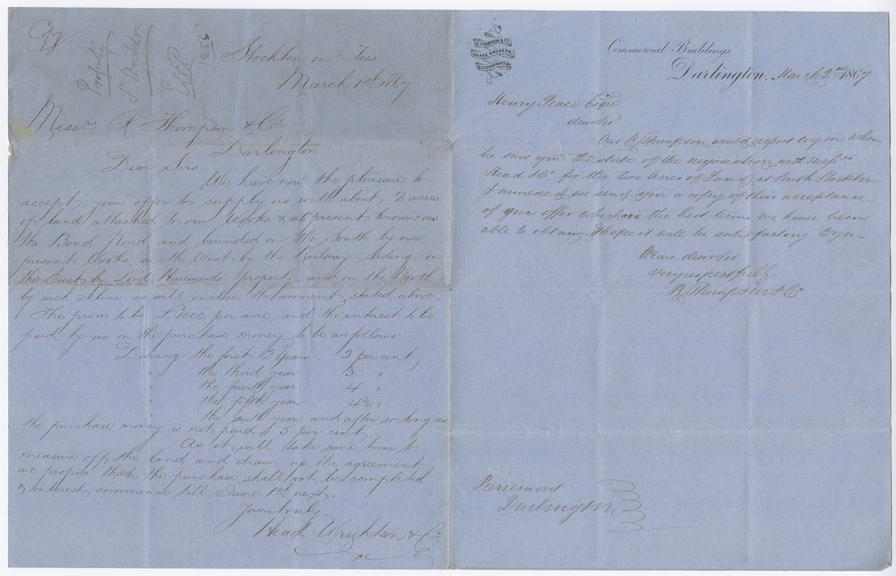 Copy
Stockton on Tees
March 1st 1867
Messrs R Thompson & Co
Darlington
Dear Sirs
We have now the pleasure to
accept your offer to supply us with about 2 acres
of land attached to our Works & at present known as
the Bond Pond and bounded on the South by our
present Works, on the West by the Railway siding, on
the East by Lord Harewoods property and on the North
by such a line as will enclose the amount stated above.
The price to be £1000 per acre, and the interest to be
paid by us on the purchase money to be as follows
During the first 2 Years 2 per cent,
the third year 3 "
the fourth year 4 "
the fifth year 4½ "
the sixth year and after so long as
the purchase money is not paid 5 per cent,
As it will take some time to
measure off the land and draw up the agreement
we propose that the purchase shall not be completed
& interest commence till June 1st next.
Yours truly
Head Wrightson & Co
R THOMPSON & CO
SHARE BROKERS
ACCOUNTANTS &c
Commercial Buildings,
Darlington, March 2nd 1867
Henry Pease Esqre
dear Sir
Our R Thompson would report to you when
he saw you the state of the negociation with Messrs
Head & Co for the two Acres of Land at South Stockton
& annexed we send you a copy of their acceptance
of your offer which are the best terms we have been
able to obtain. I hope it will be satisfactory to you
We are dear Sir
very respectfully
R Thompson & Co
Pierremont
Darlington